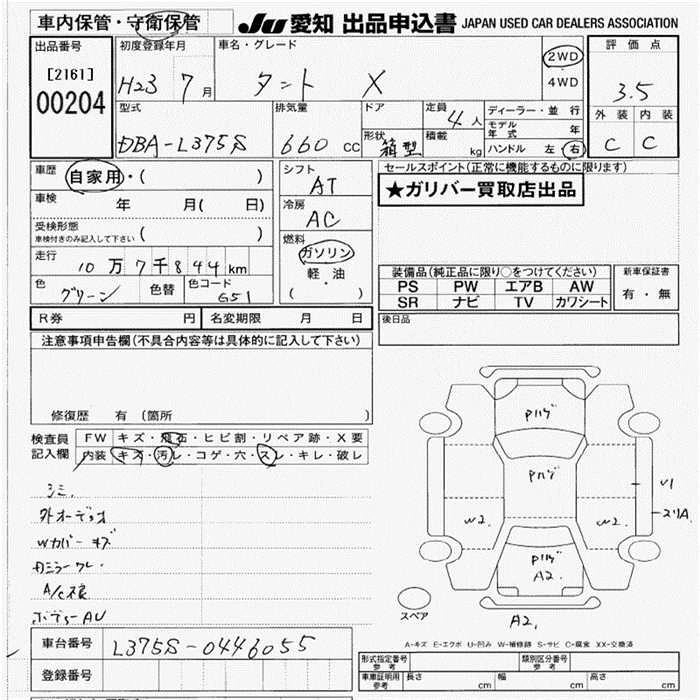 車内保管・守衛保管
JU 愛知 出品申込書 JAPAN USED CAR DEALERS ASSOCIATION
出品番号
[2161]
00204
初度登録年月
H23 7 月
車名・グレード
タント X
2WD
4WD
評価点
3.5
外装 内装
C C
型式
DBA-L375S
排気量
660 cc
ドア
形状
箱型
定員
4人
積載
kg
ディーラー・並行
モデル年式 年
ハンドル 左 右
車歴
自家用・( )
車検
年 月( 日)
受検形態
車検付きのみ記入して下さい ( )
走行
10万7千844km
色
グリーン
色替
色コード
G51
シフト
AT
冷房
AC
燃料
ガソリン
軽・油
( )
セールスポイント(正常に機能するものに限ります)
★ガリバー買取店出品
装備品(純正品に限り○をつけてください)
PS PW エアB AW
SR ナビ TV カワシート
新車保証書
有・無
後日品
R券 円 名変期限 月 日
注意事項申告欄(不具合内容等は具体的に記入して下さい)
修復歴 有 (箇所 )
検査員記入欄
FW キズ・飛石・ヒビ割・リペア跡・X要
内装 キズ・汚レ・コゲ・穴・スレ・キレ・破レ
シミ
外オーディオ
Wカバーキズ
ボディーAU
車台番号 L375S-0446055
登録番号
Pハゲ
Pハゲ
W2.
W2.
Pハゲ
A2.
A2.
スペア
A-キズ E-エクボ U-凹み W-補修跡 S-サビ C-腐食 XX-交換済
形式指定番号 参考
類別区分番号 参考
車庫証明用 参考
長さ cm 幅 cm 高さ cm